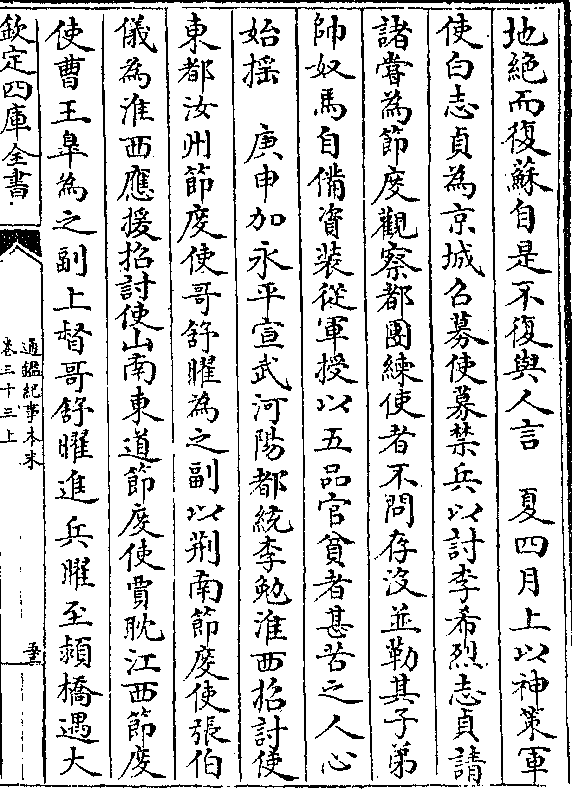 地絶而復蘇自是不復與人言　夏四月上以神策軍
使白志貞為京城召募使募禁兵以討李希烈志貞請
諸嘗為節度觀察都團練使者不問存沒並勒其子弟
帥奴馬自備資裝從軍授以五品官貧者甚苦之人心
始揺　庚申加永平宣武河陽都統李勉淮西招討使
東都汝州節度使哥舒曜為之副以荆南節度使張伯
儀為淮西應援招討使山南東道節度使賈耽江西節度
使曹王臯為之副上督哥舒曜進兵曜至潁橋遇大
欽定四庫全書
通鑑紀事本末
卷三十三上